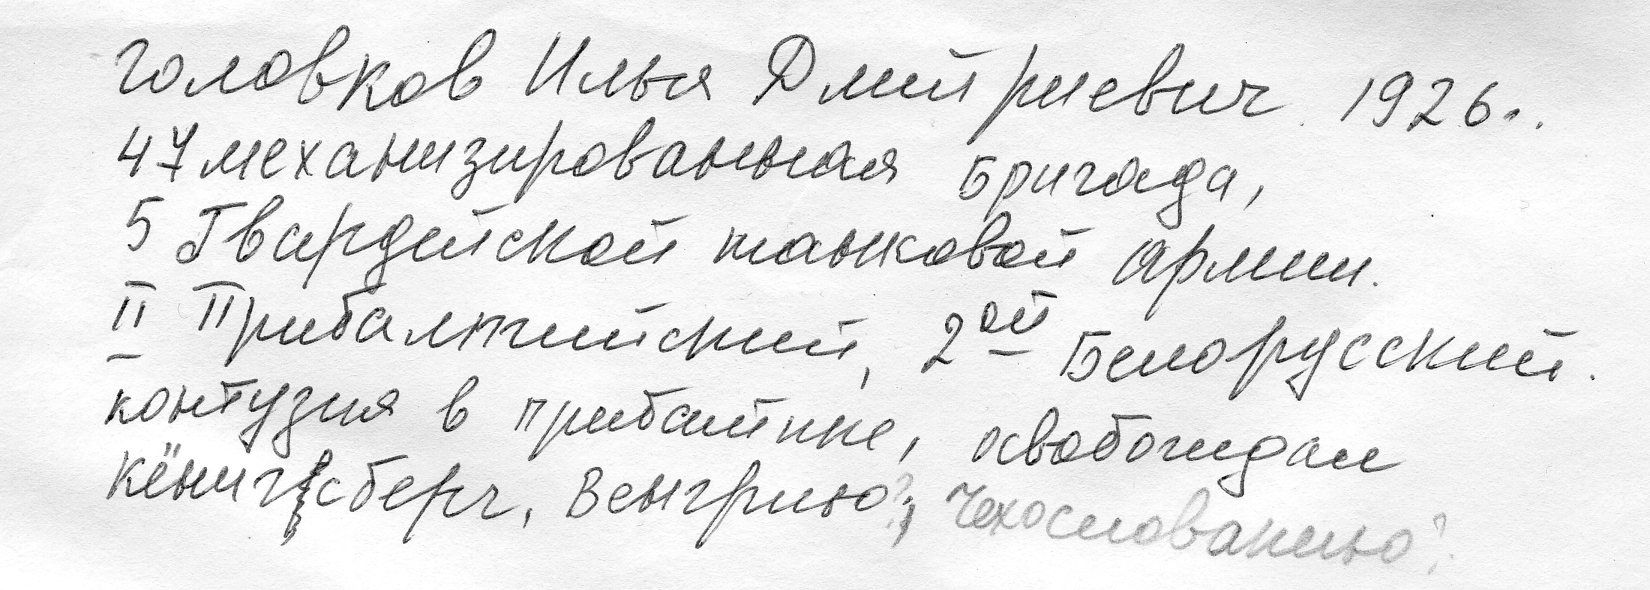 Головков Илья Дмитриевич 1926..
47 механизированная Бригада,
5 Гвардейской танковой армии.
II Прибалтийский, 2ой Белорусский.
контузия в прибалтике, освобождал
кёнигсберг, Венгрию?, Чехословакию?